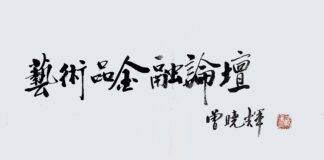 藝術品金融論壇
曾曉輝